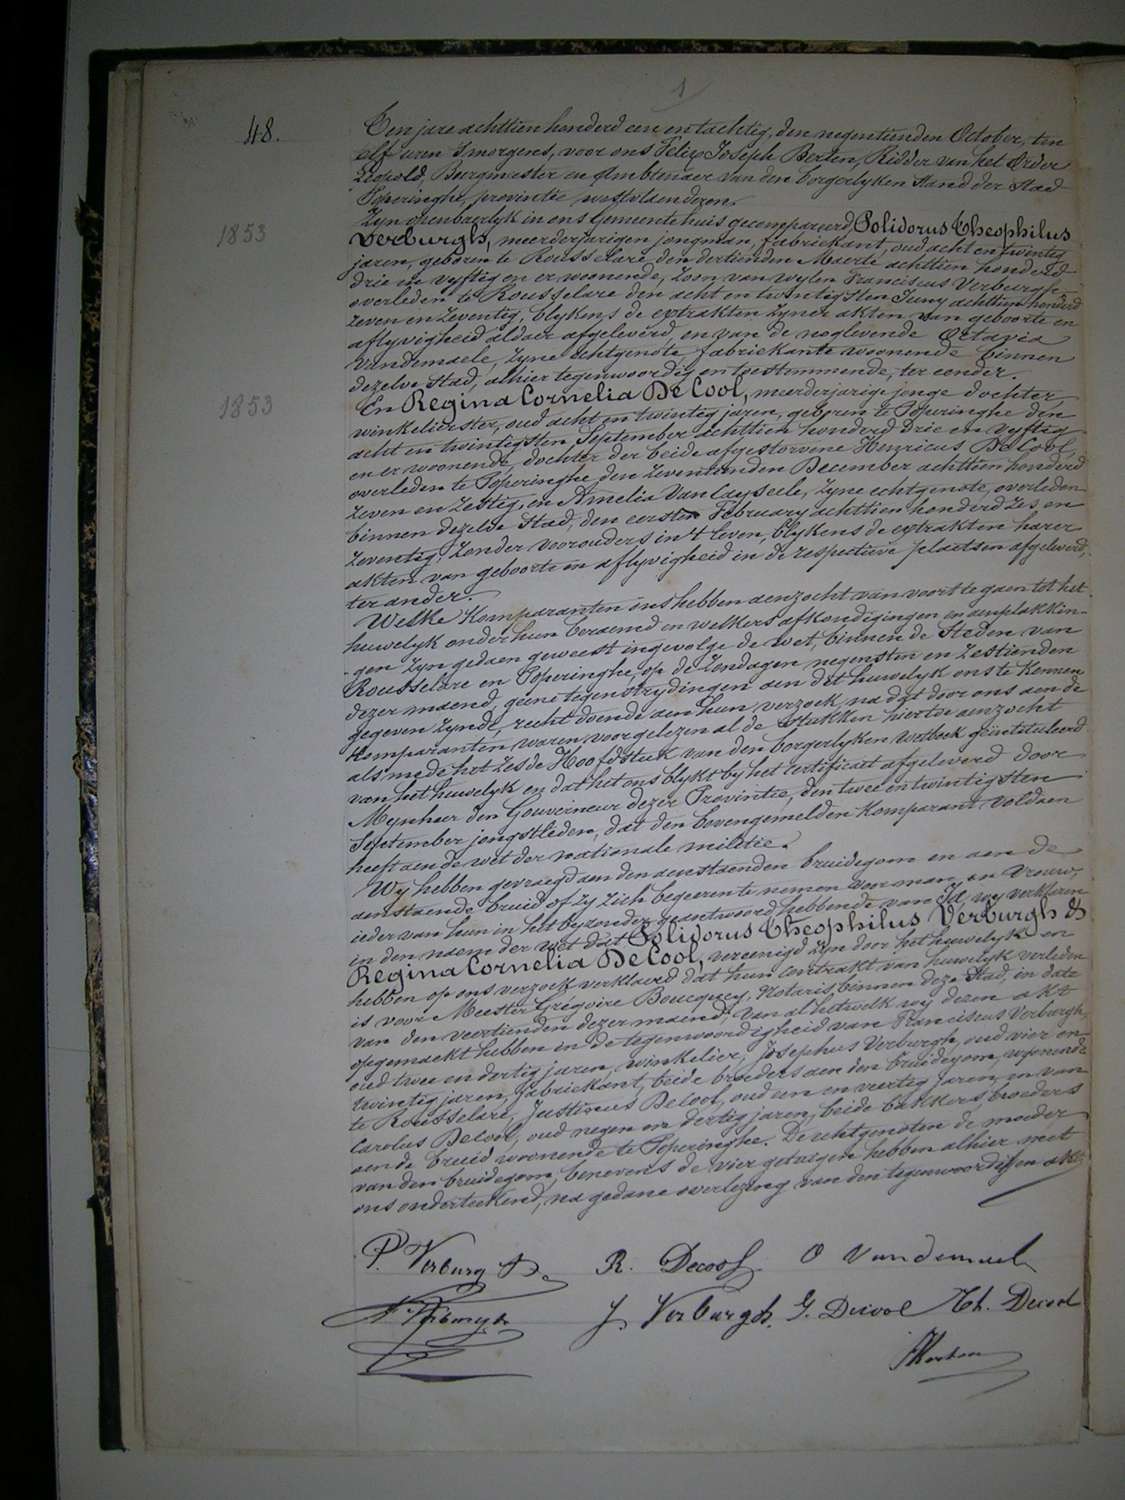 1
48.
Den jare achttien honderd een en tachtig, den negentienden October, ten
elf uren s'morgens, voor ons Felix Joseph Berten, Ridder van het Order
Leopold, Burgmeester en Ambtenaer van den borgerlyken Stand der Stad
Poperinghe, provintie westvlaenderen.
Zyn openbaerlyk in ons Gemeentehuis gecompareerd, Polidorus Theophilus
1853
Verburgh, meerderjarigen jongman, fabriekant, oud acht en twintig
jaren, geboren te Rousselare, den dertienden Meerte achttien honderd
drie en vyftig en er woonende, zoon van wylen Franciscus Verburgh
overleden te Rousselare den acht en twintigsten Juny achttien honderd
zeven en zeventig, blykens de extrakten zyner akten van geboorte en
aflyvigheid aldaer afgeleverd, en van de nog levende Octavia
Vandemaele, zyne echtgenote, fabriekante woonende binnen
dezelve Stad, alhier tegenwoordig en toestemmende, ter eender.
1853
En Regina Cornelia De Cool, meerderjarige jonge dochter,
winkelierster, oud acht en twintig jaren, geboren te Poperinghe den
acht en twintigsten September achttien honderd drie en vyftig
en er woonende, dochter der beide afgestorvene Henricus De Cool,
overleden te Poperinghe den zeventienden December achttien honderd
zeven en zestig, en Amelia Van Cayseele, zyne echtgenote, overleden
binnen dezelve Stad, den eersten February achttien honderd zes en
zeventig, zonder voorouders in 't leven, blykens de extrakten harer
akten van geboorte en aflyvigheid in de respective plaetsen afgeleverd,
ter ander.
Welke Komparanten ons hebben aenzocht van voort te gaen tot het
huwelyk onder hun beraemd en welkers afkondigingen en aenplakkin-
gen zyn gedaen geweest ingevolge de wet, binnen de Steden van
Rousselare en Poperinghe, op de zondagen negensten en zestienden
dezer maend, geene tegenstrydingen aen dit huwelyk ons te kennen
gegeven zynde, recht doende aen hun verzoek, na dat door ons aen de
Komparanten waren voorgelezen al de Stukken hiertoe aenzocht
als mede het zesde Hoofdstuk van den borgerlyken wetboek geïntituleerd
van het huwelyk en dat het ons blykt by het certificat afgeleverd door
Mynheer den Gouverneur dezer Provintie, den twee en twintigsten
September jongstleden, dat den bovengemelden Komparant voldaen
heeft aen de wet der nationale militie.
Wy hebben gevraegd aen den aenstaenden bruidegom en aen de
aenstaende bruid of zy zich begeeren te nemen voor man en vrouw,
ieder van hun in het byzonder geantwoord hebbende van Ja, wy verklaren
in den naem der wet dat Polidorus Theophilus Verburgh &
Regina Cornelia De Cool, vereenigd zyn door het huwelyk en
hebben op ons verzoek verklaerd dat hun contrakt van huwelyk verleden
is voor Meester Grégoire Boucquey, Notaris binnen deze Stad, in date
van den veertienden dezer maend. Van al hetwelk wy dezen akt
opgemaekt hebben in de tegenwoordigheid van Franciscus Verburgh,
oud twee en dertig jaren, winkelier, Josephus Verburgh, oud vier en
twintig jaren, fabriekant, beide broeders aen den bruidegom, woonende
te Rousselare, Justinus De Cool, oud een en veertig jaren, en van
Carolus De Cool, oud negen en dertig jaren, beide bakkers, broeders
aen de bruid woonende te Poperinghe. De echtgenoten de moeder
van den bruidegom, benevens de vier getuigen hebben alhier met
ons onderteekend, na gedane overlezing van den tegenwoordigen akt.
P. Verburgh R. Decool O Vandemaele
J. Verburgh. J. Decool Ch. Decool